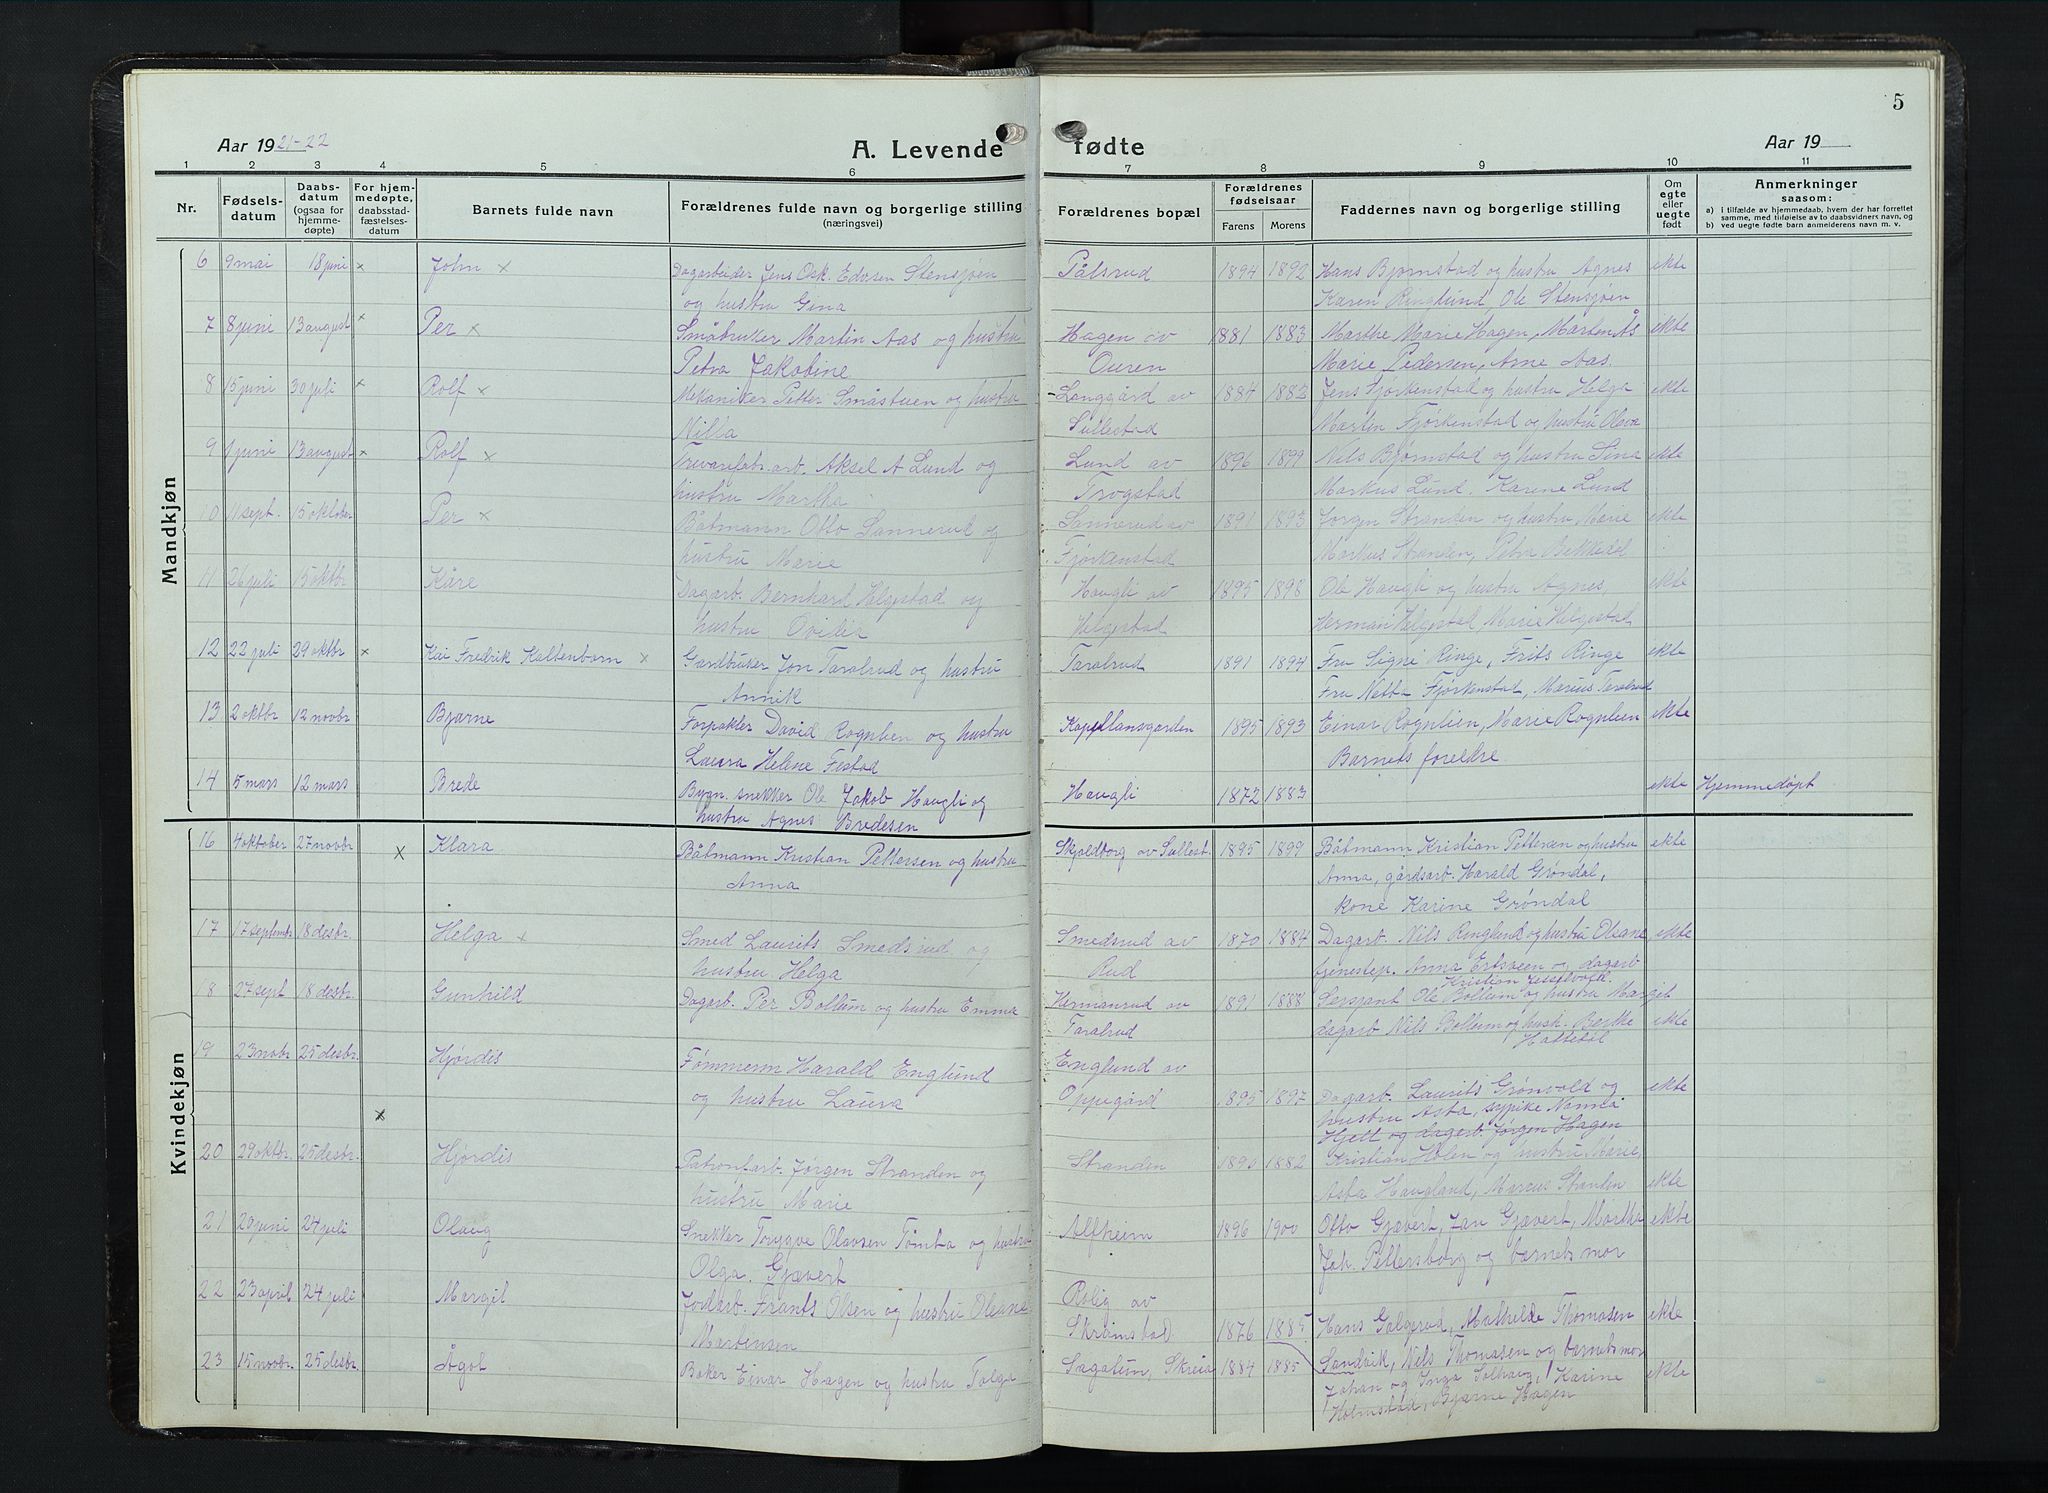 5
Aar 1921-22
A. Levende fødte
Aar 19
1 2 3 4 5 6 7 8 9 10 11
Nr.
Fødselsdatum
Daabsdatum (ogsaa for hjemmedøpte)
For hjemmedøpte, daabsstadfæstelsesdatum
Barnets fulde navn
Forældrenes fulde navn og borgerlige stilling (næringsvei)
Forældrenes bopæl
Forældrenes fødselsaar
Farens Morens
Faddernes navn og borgerlige stilling
Om egte eller uegte født
Anmerkninger saasom:
a) i tilfælde av hjemmedaab, hvem der har forrettet samme, med tilføielse av to daabsvidners navn, og
b) ved uegte fødte barn anmelderens navn m. v.
Mandkjøn
6 9 mai 18 juni x John x Dagarbeider Jens Osk. Edvrsen Stensjøen Pålsrud 1894 1892 Hans Bjørnstad og hustru Agnes ekte
og hustru Gina Karen Ringlund, Ole Stensjøen
7 8 juni 13 august x Per x Småbruker Martin Aas og hustru Hagen av 1881 1883 Marthe Marie Hagen, Marten Ås ekte
Petra Jakobine Ouren Marie Pedersen, Arne Aas.
8 15 juni 30 juli x Rolf x Mekaniker Petter Småstuen og hustru Langgård av 1884 1883 Jens Fjørkenstad og hustru Helga ekte
Nilla Sullestad Martin Fjørkenstad og hustru Olava
9 1 juni 13 august x Rolf x Trevarefabr.arb. Aksel A Lund og Lund av 1896 1899 Nils Bjørnstad og hustru Sina ekte
hustru Martha Trogstad Markus Lund, Karene Lund
10 11 sept. 15 oktober Per x Båtmann Otto Sannerud og Sannerud av 1891 1893 Jørgen Stranden og hustru Marie ekte
hustru Marie Fjørkenstad Markus Stranden, Petra Bekkedal
11 26 juli 15 oktbr Kåre Dagarb. Bernhard Helgestad og Haugli av 1895 1898 Ole Haugli og hustru Agnes, ekte
hustru Ovidie Helgestad Herman Helgestad, Marie Helgestad
12 22 juli 29 oktbr x Kai Fredrik Kaltenborn x Gardbruker Jon Taralrud og hustru Taralrud 1891 1894 Fru Signe Ringe, Frits Ringe ekte
Annik Fru Netta Fjørkenstad, Marius Taralrud
13 2 oktbr 12 novbr Bjarne Forpakter David Rognlien og hustru Kapellansgarden 1895 1893 Einar Rognlien, Marie Rognlien ekte
Laura Helene Festad Barnets foreldre
14 5 mars 12 mars Brede Bygn. snekker Ole Jakob Haugli og Haugli 1872 1883 ekte Hjemmedøpt
hustru Agnes Bredesen
Kvindekjøn
16 4 oktober 27 novbr x Klara Båtmann Kristian Pettersen og hustru Skjoldborg av Sullest. 1895 1899 Båtmann Kristian Pettersen og hustru ekte
Anna Anna, gårdsarb. Harald Grøndal,
kone Karine Grøndal
17 17 septembr 18 desbr. Helga x Smed Laurits Smedsrud og Smedsrud av 1870 1884 Dagarb. Nils Ringlund og hustru Oleane ekte
hustru Helga Rud tjenestep. Anna Ertsveen og dagarb
18 27 sept 18 desbr. Gunhild Dagarb. Per Bollum og hustru Emma Hermanrud av 1891 1888 Sersjant Ole Bollum og hustru Margit
Taralrud dagarb Nils Bollum og hust. Berthe ekte
19 23 nobr 25 desbr. Hjørdis Fømmenn Harald Englund Englund av
og hustru Laura Oppegård 1895 1897 Dagarb. Laurits Grønvold og ekte
x hustru Asta, sypike Nanna
Hjell og dagarb. Jørgen Hagen
20 29 oktbr. 25 desbr. Hjørdis Patronfarb. Jørgen Stranden og Stranden 1890 1882 Kristian Holen og hustru Marie,
hustru Marie Asta Haugland, Marcus Stranden ekte
21 20 juni 24 juli Olaug Snekker Tryggve Olavsen Tømta og hustru Alfheim 1896 1900 Otto Gjævert, Jan Gjævert, Martha ekte
Olga. Gjævert Joh. Pettersborg og barnets mor
22 23 april 24 juli Margit Jodarb. Frants Olsen og hustru Oleane Rolig av
Martensen Skramstad 1876 1885 Hans Galgerud, Mathilde Thomasen ekte
23 15 novbr. 25 desbr. Ågot Baker Einar Hagen og hustru Tolga Sagatun, Skreia 1884 1885 Sandvik, Nils Thomasen og barnets mor
Johan og Inga Solhaug, Karine ekte
Holmstad, Bjarne Hagen